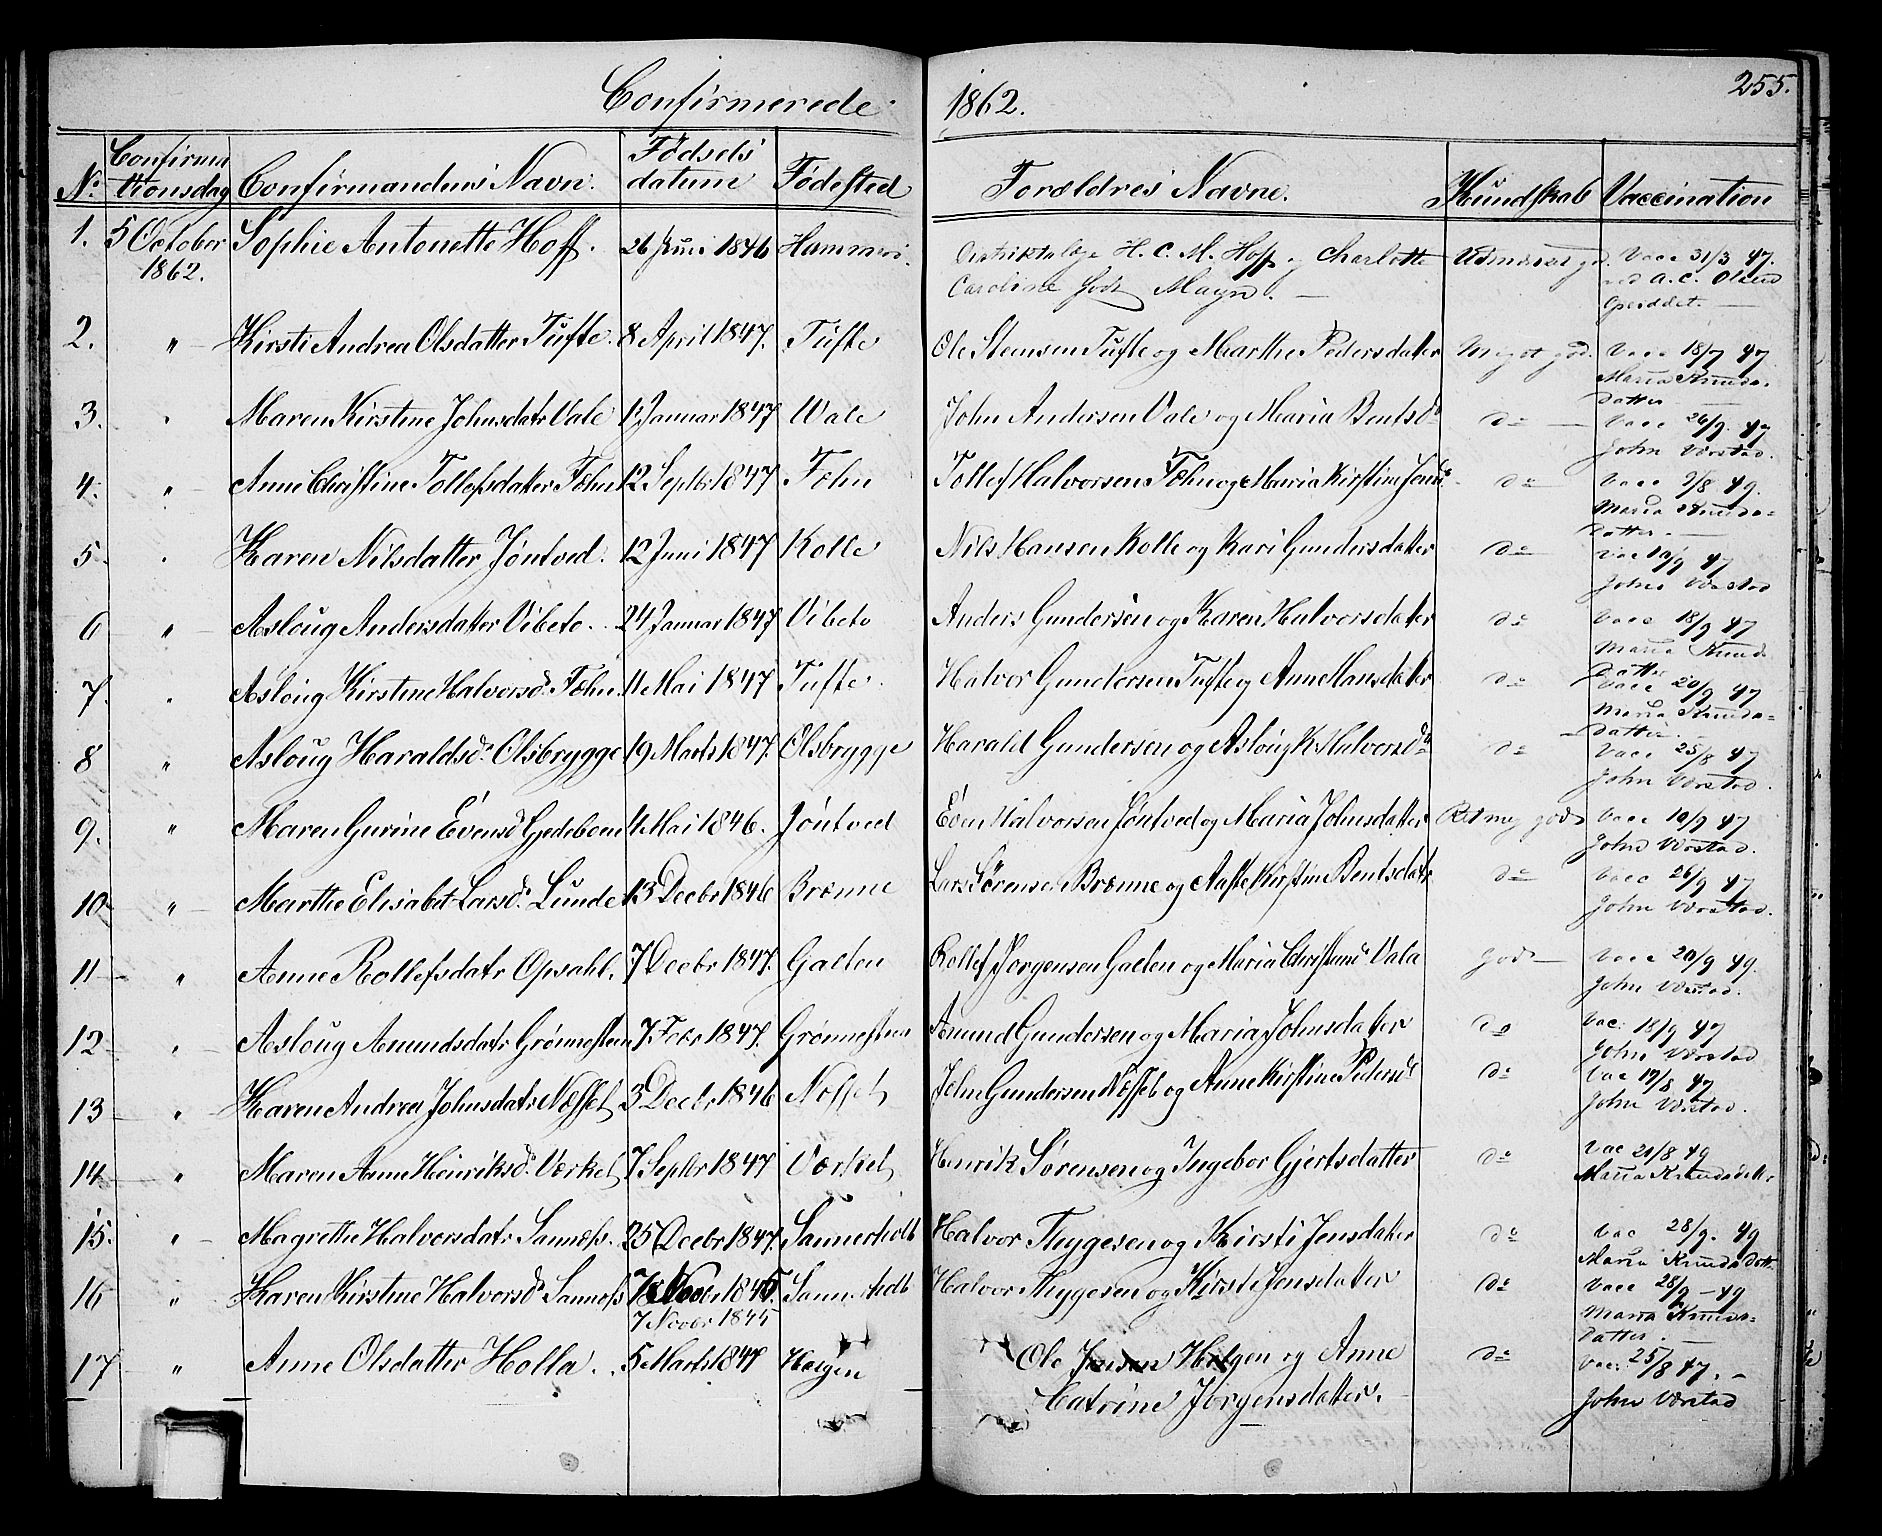 Confirmerede 1862. 255.
No Confirmationsdag Confirmandens Navn. Fødselsdatum Fødested Forældres Navne. Kundskab Vaccination
1. 5 October 1862. Sophie Antonette Hoff. 26 Juni 1846 H. C. M. Hoff og Charlotte Vacc 31/3 47.
Caroline født ved A. C. Olsen
2. " Kirsti Andrea Olsdatter Tufte. 8 April 1847. Tufte Ole Stensen Tufte og Marthe Pedersdatter Meget god. Vacc 18/9 47
Maria Knudsdatter
3. " Maren Kirstine Johnsdatr Vale 12 Januar 1847 Vale John Andersen Vale og Maria Bentsdr do Vacc 26/9. 47
John Værstad.
4. " Anne Christine Tollefsdatter Fæhn 12 Septbr 1847 Fæhn Tollef Halvorsen Fæhn og Maria Kirstine do Vacc 9/8 49.
Maria Knudsdatter.
5. " Karen Nilsdatter Jøntved. 12 Juni 1847 Kolle Nils Hansen Kolle og Kari Gundersdatter do Vac 10/9 47
John Værstad
6 " Asloug Andersdatter Vibeto. 24 Januar 1847 Vibeto Anders Gundersen og Karen Halvorsdatter do Vacc 18/9 47
Maria Knudsdatter
7. " Asloug Kirstine Halvorsd. Fæhn. 11 Mai 1847 Tufte. Halvor Gundersen Tufte og Anne Hansdatter do Vacc 20/9 47
Maria Knudsdatter.
8 " Asloug Haraldsd. Olsbrygge 19 Marts 1847. Olsbrygge Harald Gundersen og Asloug K. Halvorsdr do Vacc 25/8 47
John Værstad.
9. " Maren Gurine Evensd Gjedeboen 11 Mai 1846. Jøntved Even Halvorsen Jøntved og Maria Johnsdatter Ret meg god Vacc 10/9 47
John Værstad.
10 " Marthe Elisabet Larsd. Lunde 13 Decbr 1846 Brænne Lars Sørensen Brænne og Aaste Kirstine Bentsdatr do Vacc 26/9 47
John Værstad.
11 " Anne Rollefsdatr Opsahl. 7 Decbr 1847. Galten Rollef Jørgensen Galten og Maria Vala god Vacc 20/9 49.
John Værstad.
12 " Asloug Amundsdatr Grønnesteen 7 Febr 1847. Grønnesteen Amund Gundersen og Maria Johnsdatter do Vac: 18/9 47
John Værstad
13 " Karen Andrea Johnsdatr Næsset 3 Decbr 1846 Næsset John Gundersen Næsset og Anne Kirstine Pedersdr do Vac 19/8 47
John Værstad.
14 " Maren Anne Henriksd. Værket 7 Septbr 1847 Værket Henrik Sørensen og Ingebor Gjertsdatter do Vac 21/8 49
Maria Knudsdattr
15. " Magrethe Halvorsdatr Sannæss. 25 Decbr 1847. Sannerholt Halvor Thygesen og Kirsti Jensdatter do Vac 28/9. 49
Maria Knudsdatr
16 " Karen Kirstine Halvorsd Sannæss Novbr 1845 Sannerholt Halvor Thygesen og Kirsti Jensdatter do Vacc 28/9 - 49
7 Novbr 1845 Maria Knudsdatter.
17 " Anne Olsdatter Holla. 5 Marts 1847 Haugen Ole Jensen og Anne do Vac: 25/8 47.
Catrine Jørgensdatter. John Værstad